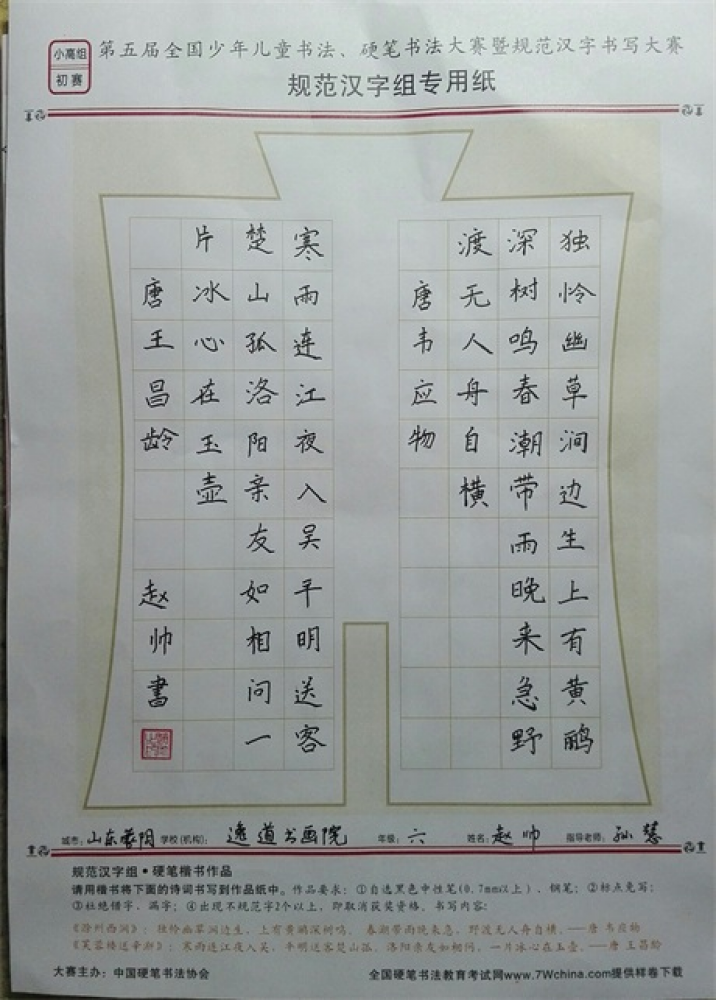 小高组
初赛
第五届全国少年儿童书法、硬笔书法大赛暨规范汉字书写大赛
规范汉字组专用纸
独怜幽草涧边生上有黄鹂
深树鸣春潮带雨晚来急野
渡无人舟自横
唐韦应物
寒雨连江夜入吴平明送客
楚山孤洛阳亲友如相问一
片冰心在玉壶
唐王昌龄
赵帅书
城市：山东蒙阴 学校(机构)：逸道书画院 年级：六 姓名：赵帅 指导老师：孙慧
规范汉字组·硬笔楷书作品
请用楷书将下面的诗词书写到作品纸中。作品要求：①自选黑色中性笔(0.7mm以上)、钢笔；②标点免写；
③杜绝错字、漏字；④出现不规范字2个以上，即取消获奖资格。书写内容：
《滁州西涧》：独怜幽草涧边生，上有黄鹂深树鸣。春潮带雨晚来急，野渡无人舟自横。——唐 韦应物
《芙蓉楼送辛渐》：寒雨连江夜入吴，平明送客楚山孤。洛阳亲友如相问，一片冰心在玉壶。——唐 王昌龄
大赛主办：中国硬笔书法协会 全国硬笔书法教育考试网www.7Wchina.com提供样卷下载